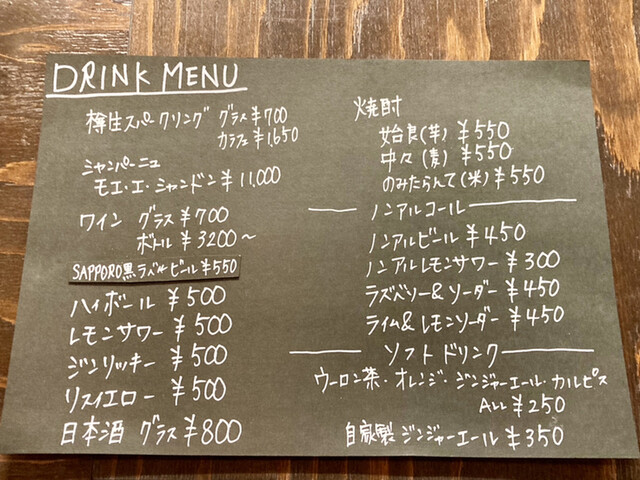 DRINK MENU
樽生スパークリング グラス ¥700
カラフェ ¥1,650
シャンパーニュ
モエ・エ・シャンドン ¥11,000
ワイン グラス ¥700
ボトル ¥3200～
SAPPORO黒ラベルビール ¥550
ハイボール ¥500
レモンサワー ¥500
ジンリッキー ¥500
リスイエロー ¥500
日本酒 グラス ¥800
焼酎
始良(芋) ¥550
中々(麦) ¥550
のみたらんて(米) ¥550
ノンアルコール
ノンアルビール ¥450
ノンアルレモンサワー ¥300
ラズベリー&ソーダー ¥450
ライム&レモンソーダー ¥450
ソフトドリンク
ウーロン茶・オレンジ・ジンジャーエール・カルピス
ALL ¥250
自家製ジンジャーエール ¥350